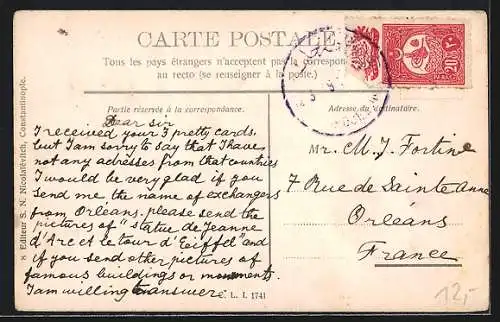 CARTE POSTALE
Tous les pays étrangers n'acceptent pas la correspon
au recto (se renseigner à la poste.)
Partie réservée à la correspondance.
Adresse du destinataire.
Dear sir
I received your 3 pretty cards.
but I am sorry to say that I have
not any adresses from that countries
I would be very glad if you
send me the name of exchangers
from Orléans. please send the
pictures of "statue de Jeanne
d'Arc et le tour d'Eoiffel" and
if you send other pictures of
famous buildings or monuments.
I am willing to answer.
Mr. M. J. Fortine
7 Rue de Sainte Anne
Orléans
France
8 Editeur S. N. Nicolaïévitch, Constantinople.
L. I. 1741
20
٢٠
12,-